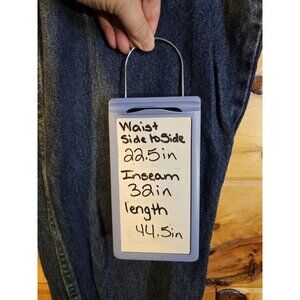 Waist
Side to Side
22.5in
Inseam
32in
length
44.5in